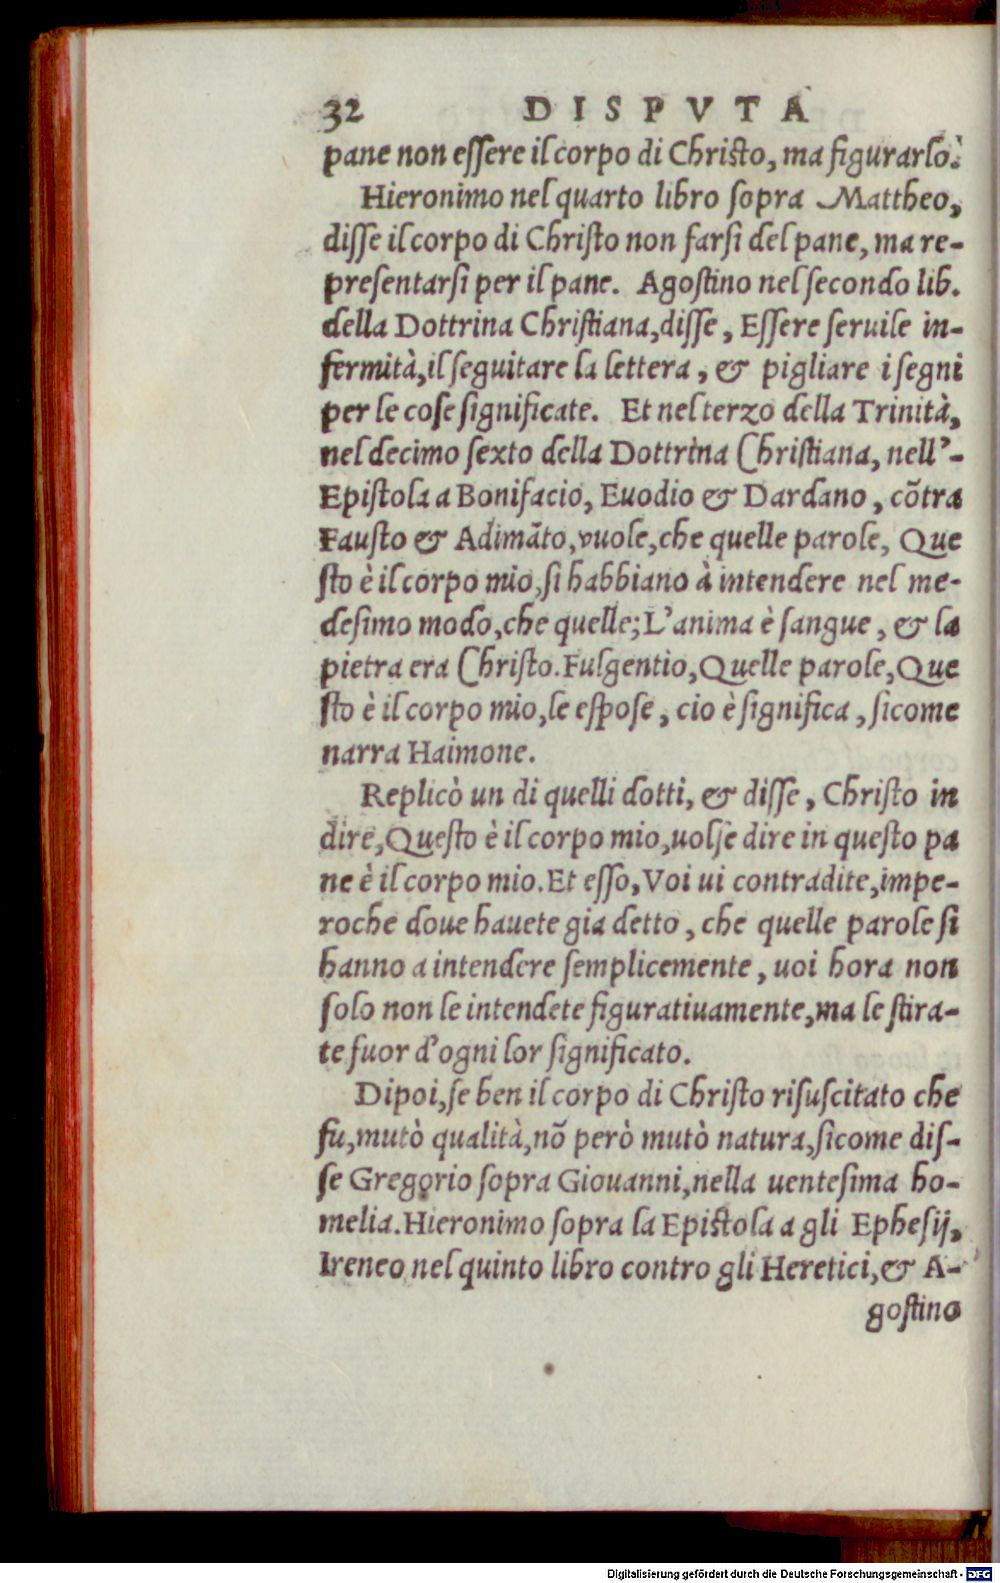 32 DISPVTA
pane non eſſere il corpo di Chriſto, ma figurarlo.
Hieronimo nel quarto libro ſopra Mattheo,
diſſe il corpo di Chriſto non farſi del pane, ma re-
preſentarſi per il pane. Agoſtino nel ſecondo lib.
della Dottrina Chriſtiana, diſſe, Eſſere ſeruile in-
fermità, il ſeguitare la lettera, & pigliare i ſegni
per le coſe ſignificate. Et nel terzo della Trinità,
nel decimo ſexto della Dottrina Chriſtiana, nell'-
Epiſtola a Bonifacio, Euodio & Dardano, cõtra
Fauſto & Adimãto, vuole, che quelle parole, Que
ſto è il corpo mio, ſi habbiano à intendere nel me-
deſimo modo, che quelle; L'anima è ſangue, & la
pietra era Chriſto. Fulgentio, Quelle parole, Que
ſto è il corpo mio, le eſpoſe, cio è ſignifica, ſicome
narra Haimone.
Replicò un di quelli dotti, & diſſe, Chriſto in
dire, Queſto è il corpo mio, uolſe dire in queſto pa
ne è il corpo mio. Et eſſo, Voi ui contradite, impe-
roche doue hauete gia detto, che quelle parole ſi
hanno a intendere ſemplicemente, uoi hora non
ſolo non le intendete figuratiuamente, ma le ſtira-
te fuor d'ogni lor ſignificato.
Dipoi, ſe ben il corpo di Chriſto riſuſcitato che
fu, mutò qualità, nõ però mutò natura, ſicome diſ-
ſe Gregorio ſopra Giouanni, nella uenteſima ho-
melia. Hieronimo ſopra la Epiſtola a gli Epheſij,
Ireneo nel quinto libro contro gli Heretici, & A-
goſtino
Digitalisierung gefördert durch die Deutsche Forschungsgemeinschaft - DFG